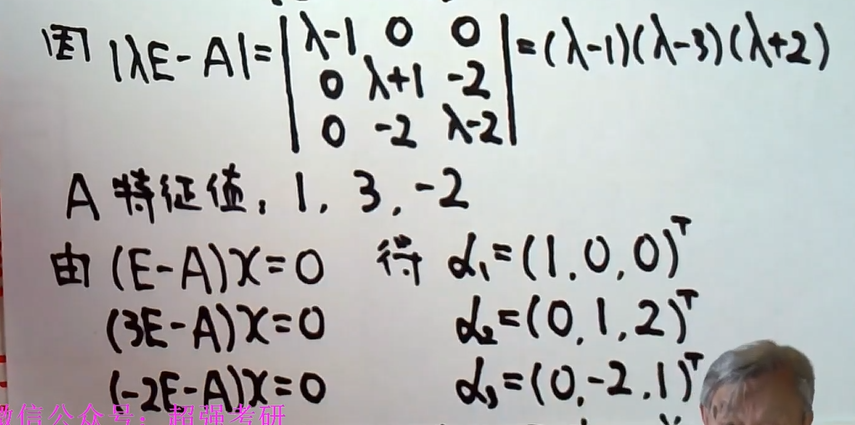 因 |λE-A|=|λ-1 0 0| =(λ-1)(λ-3)(λ+2)
0 λ+1 -2
0 -2 λ-2
A 特征值: 1, 3, -2
由 (E-A)x=0 得 α₁=(1,0,0)ᵀ
(3E-A)x=0 α₂=(0,1,2)ᵀ
(-2E-A)x=0 α₃=(0,-2,1)ᵀ
微信公众号：超强考研